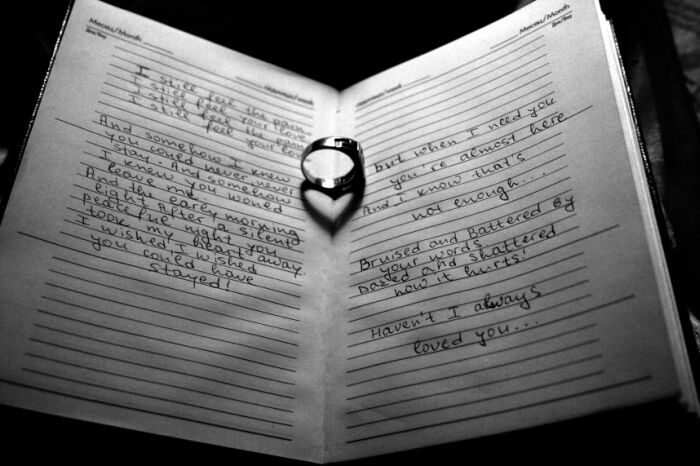 Месяц/Month
I still feel the pain
I still feel your love
I still feel the pain
I still feel your lo
And somehow I knew
you could never never
stay. And somehow
I knew you woned
leave me.
And the early morning
light After a silent
peaceful night you
took my heart away
I wished, I wished
you could have
stayed!
Месяц/Month
but when I need you
you're almost here
And I know that's
not enough....
Bruised and Battered By
your words
Dazed and shattered
now it hurts!
Haven't I always
loved you...